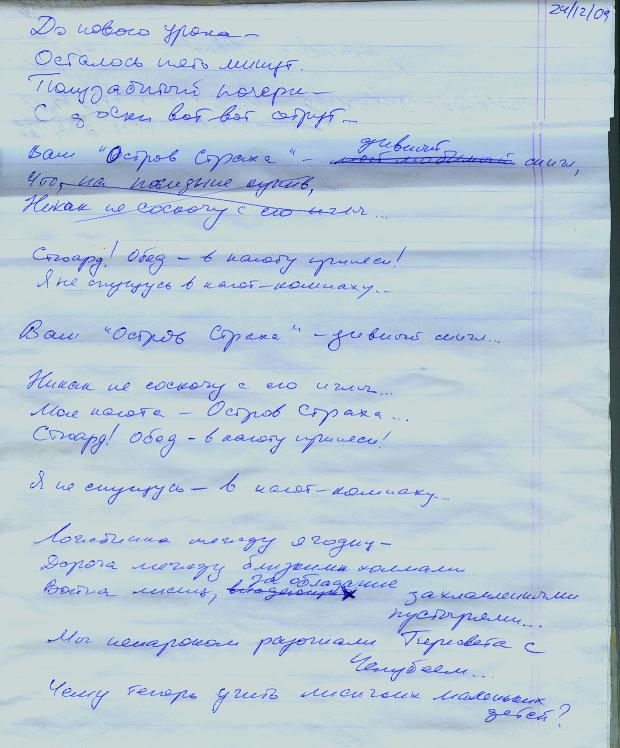 29/12/09
До нового урока –
Осталось пять минут.
Полузабитый почерк –
С доски вот-вот сотрут –
дивный
Ваш "Остров Страха" – мой любимый сингл,
Что, на последние купив,
Никак не соскочу с его иглы...
Стюард! Обед – в каюту принеси!
Я не спущусь в кают-компанию...
Ваш "Остров Страха" – дивный сингл...
Никак не соскочу с его иглы...
Моя каюта – Остров Страха...
Стюард! Обед – в каюту принеси!
Я не спущусь – в кают-компанию...
между ягодиц –
Дорога между близкими холмами
за обладание
Война лисиц, захламленными
пустырями...
Мы ненароком разогнали Пересвета с
Челубеем...
Чему теперь учить лисичьих маленьких
детей?